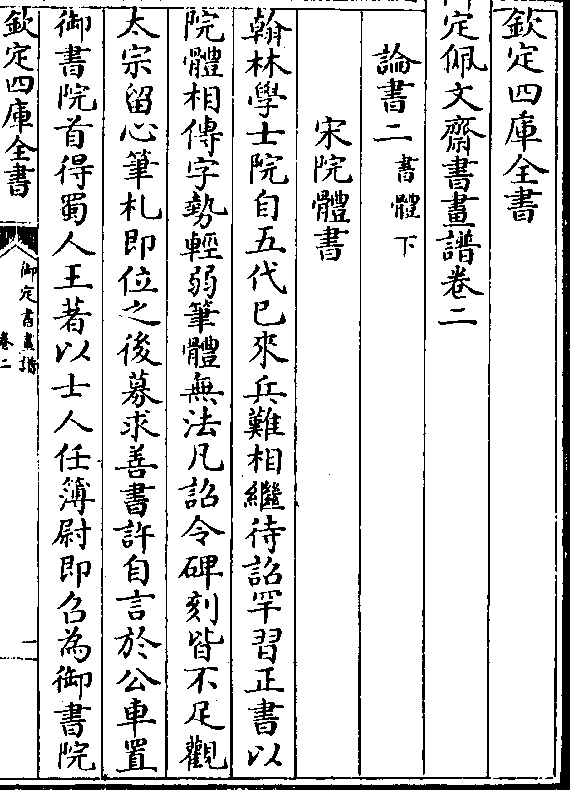 欽定四庫全書
御定佩文齋書畫譜卷二
論書二書體下
宋院體書
翰林學士院自五代已來兵難相繼待詔罕習正書以
院體相傳字勢輕弱筆體無法凡詔令碑刻皆不足觀
太宗留心筆札即位之後募求善書許自言於公車置
御書院首得蜀人王著以士人任簿尉即召為御書院
欽定四庫全書
御定書畫譜
卷二
一